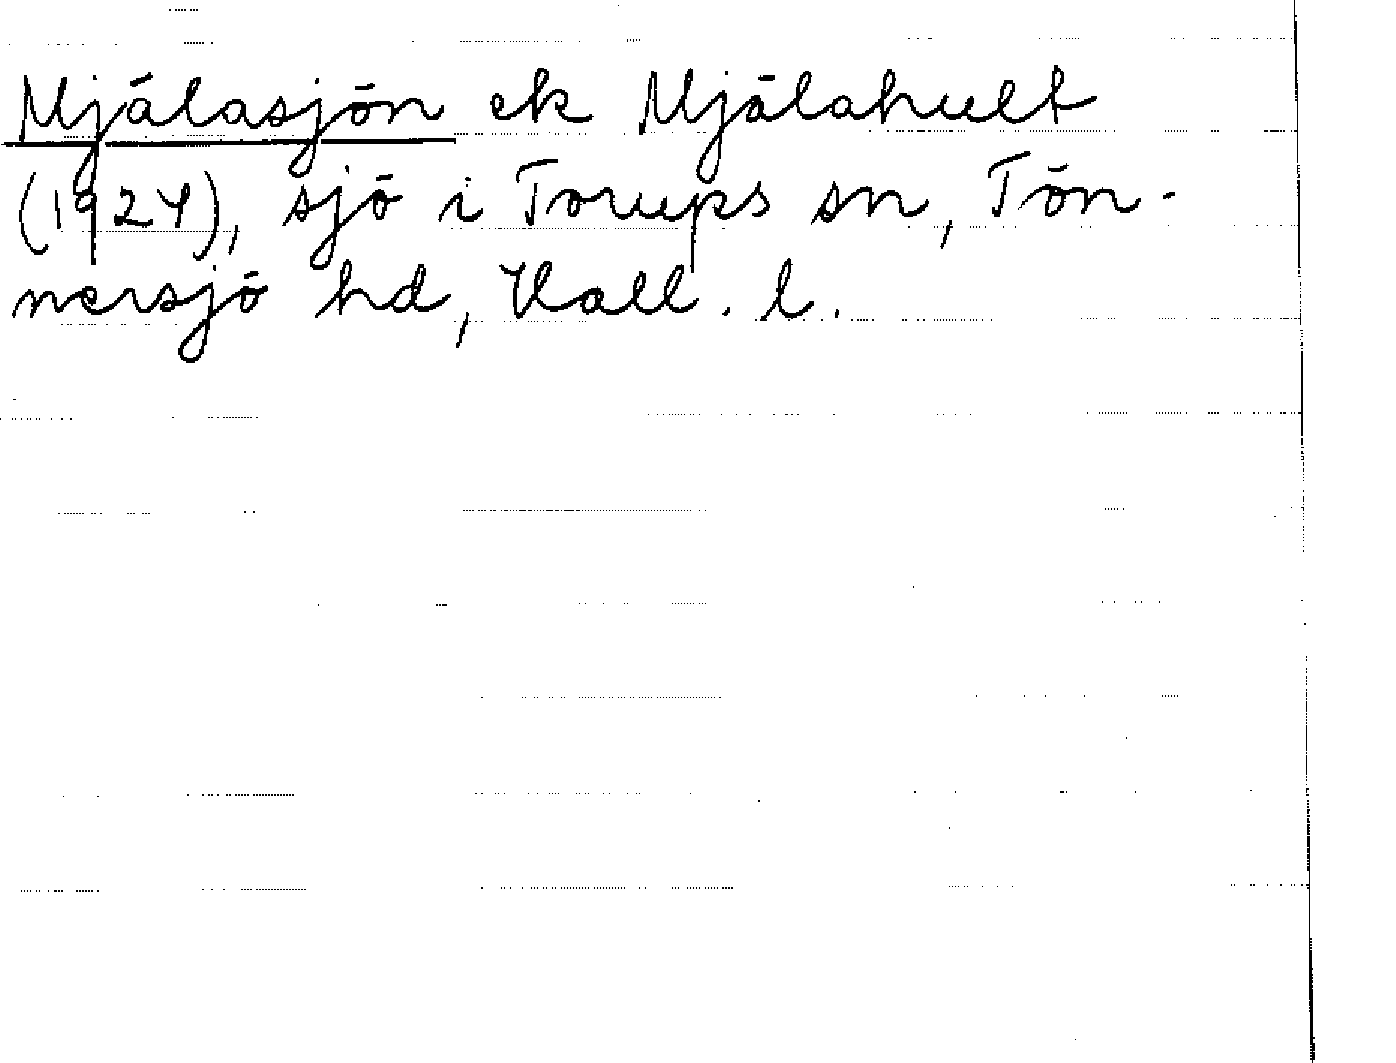 Mjälasjön ek Mjälahult
(1924), sjö i Torups sn, Tön-
nersjö hd, Hall. l.